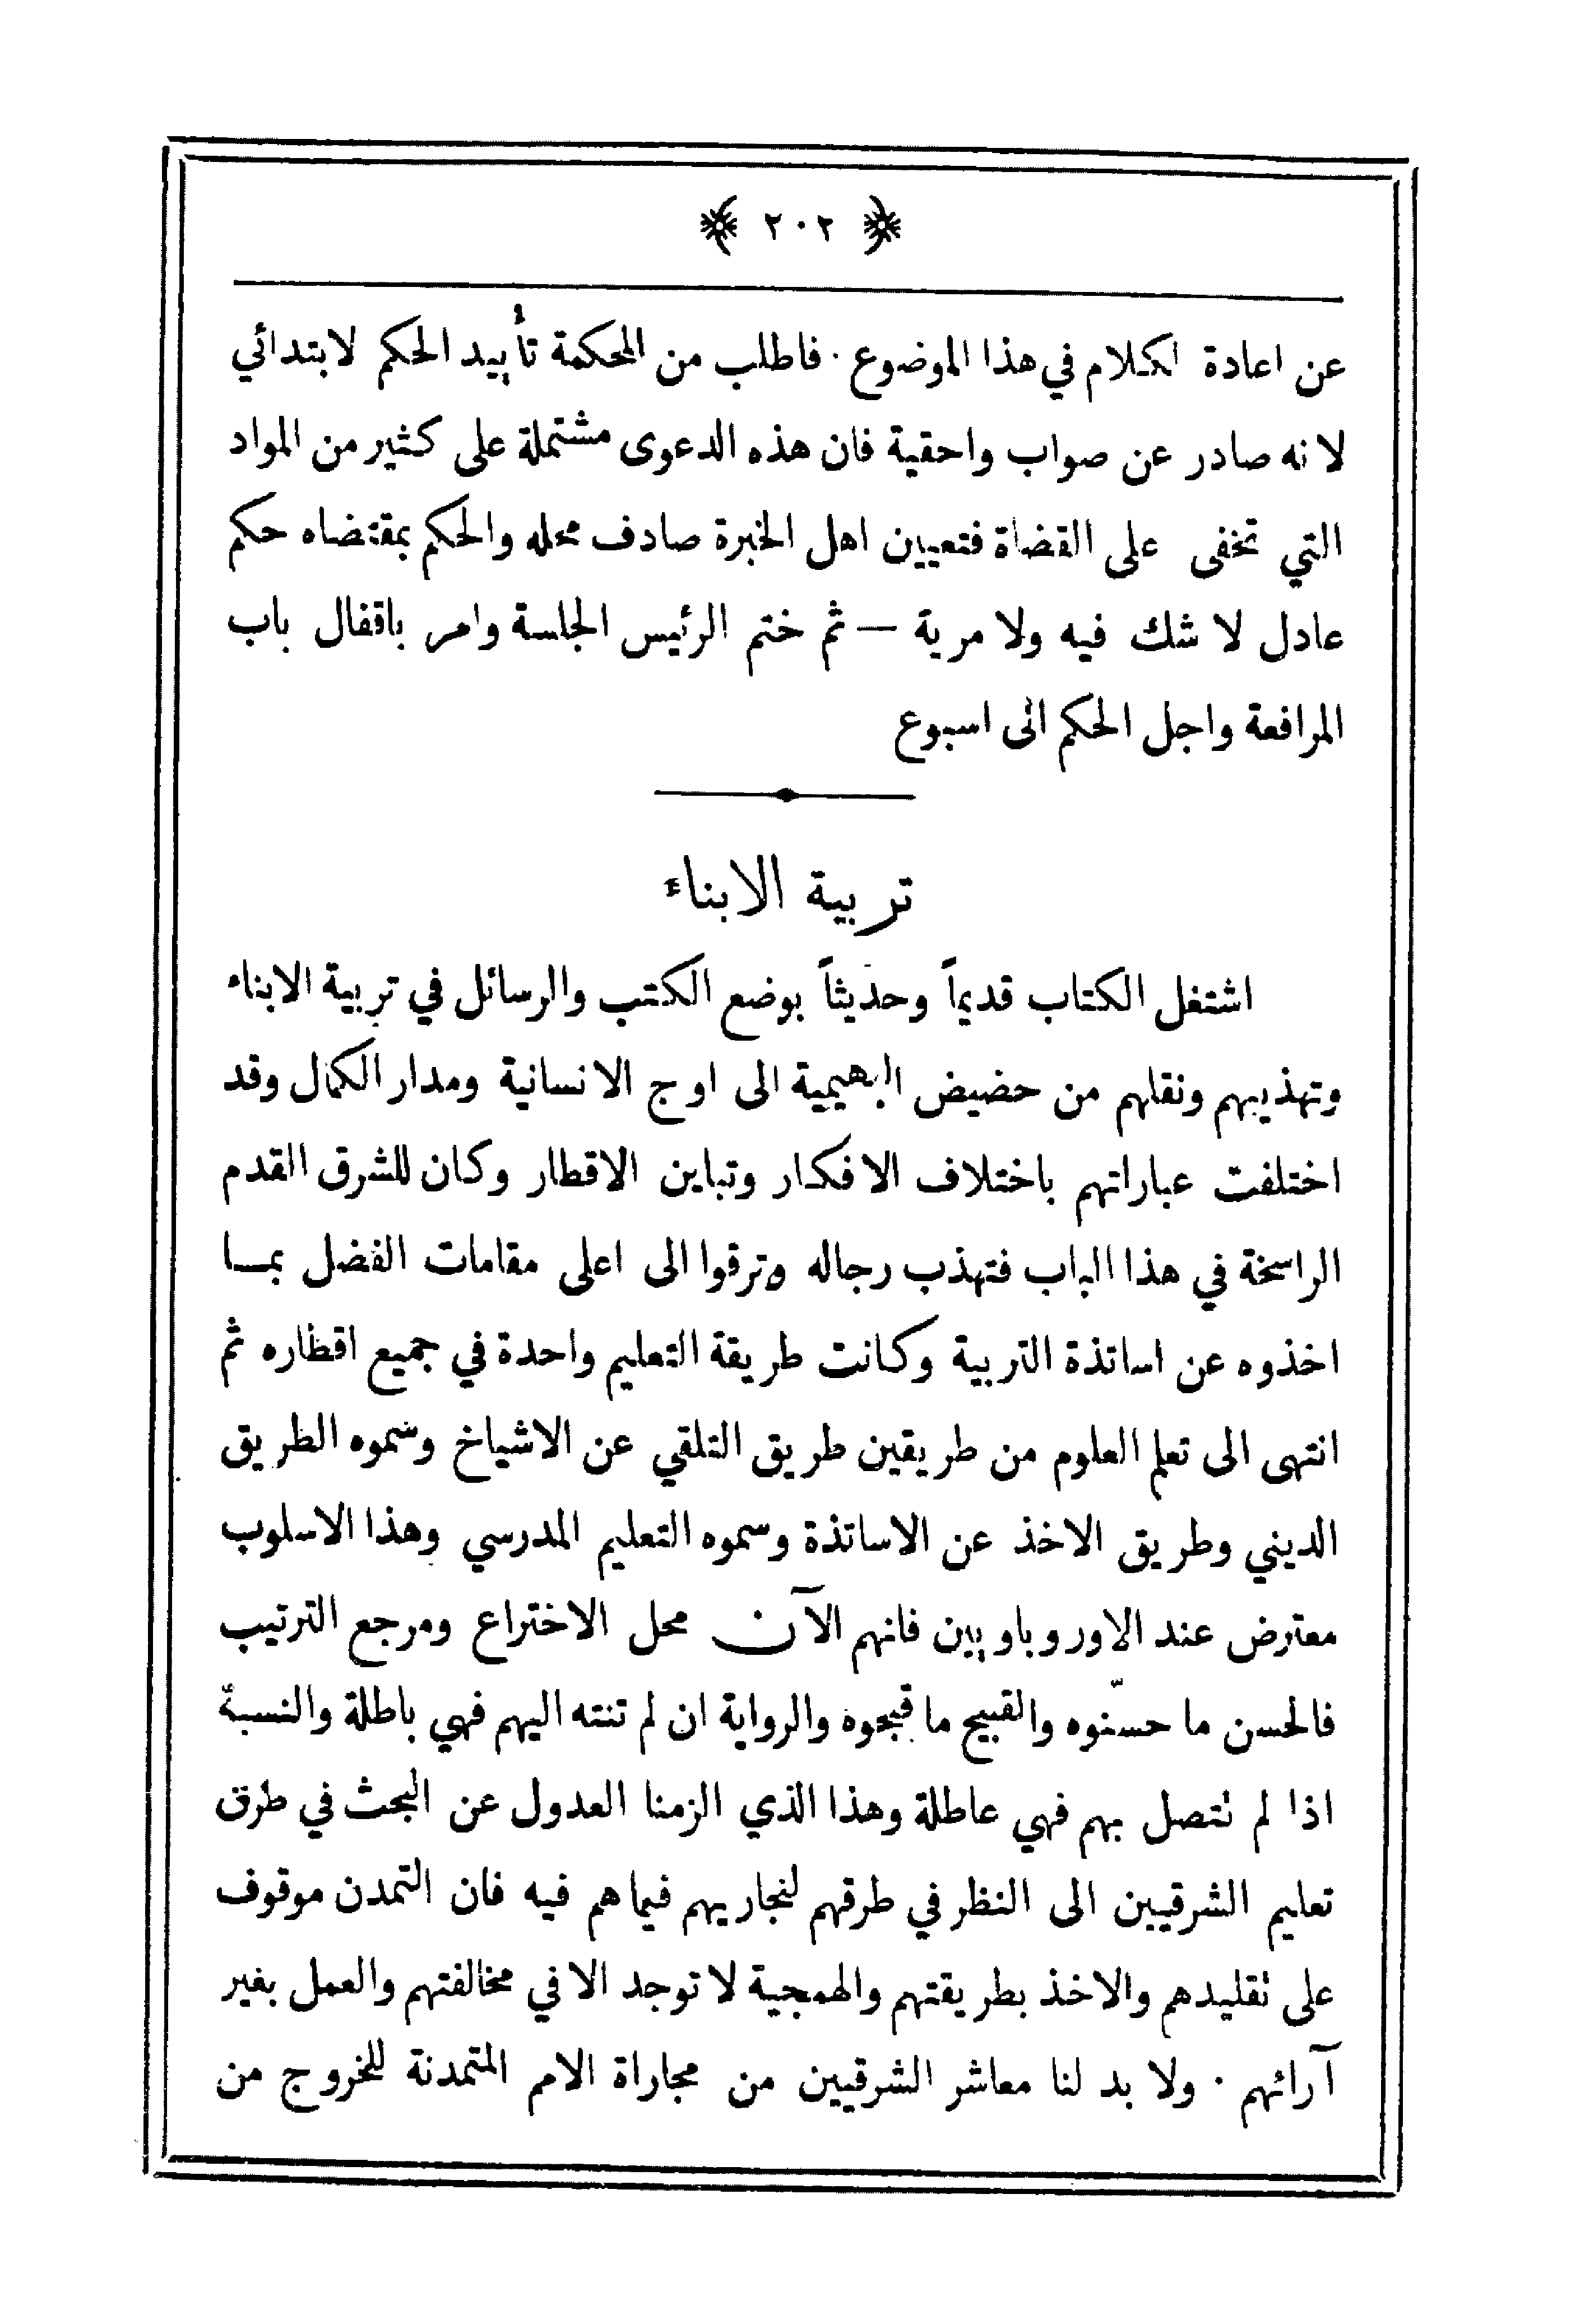 ٢٠٢
عن اعادة الكلام في هذا الموضوع · فاطلب من المحكمة تأييد الحكم لابتدائي
لانه صادر عن صواب واحقية فان هذه الدعوى مشتملة على كثير من المواد
التي تخفى على القضاة فتعيين اهل الخبرة صادف محله والحكم بمقتضاه حكم
عادل لا شك فيه ولا مرية — ثم ختم الرئيس الجلسة وامر باقفال باب
المرافعة واجل الحكم الى اسبوع
تربية الابناء
اشتغل الكتاب قديماً وحديثاً بوضع الكتب والرسائل في تربية الابناء
وتهذيبهم ونقلهم من حضيض البهيمية الى اوج الانسانية ومدار الكمال وقد
اختلفت عباراتهم باختلاف الافكار وتباين الاقطار وكان للشرق القدم
الراسخة في هذا الباب فتهذب رجاله وترقوا الى اعلى مقامات الفضل بمـا
اخذوه عن اساتذة التربية وكانت طريقة التعليم واحدة في جميع اقطاره ثم
انتهى الى تعلم العلوم من طريقين طريق التلقي عن الاشياخ وسموه الطريق
الديني وطريق الاخذ عن الاساتذة وسموه التعليم المدرسي وهذا الاسلوب
معترض عند الاوروباويين فانهم الآن محل الاختراع ومرجع الترتيب
فالحسن ما حسّنوه والقبيح ما قبحوه والرواية ان لم تنته اليهم فهي باطلة والنسبة
اذا لم تتصل بهم فهي عاطلة وهذا الذي الزمنا العدول عن البحث في طرق
تعليم الشرقيين الى النظر في طرقهم لنجاريهم فيما هم فيه فان التمدن موقوف
على تقليدهم والاخذ بطريقتهم والهمجية لا توجد الا في مخالفتهم والعمل بغير
آرائهم · ولا بد لنا معاشر الشرقيين من مجاراة الامم المتمدنة للخروج من